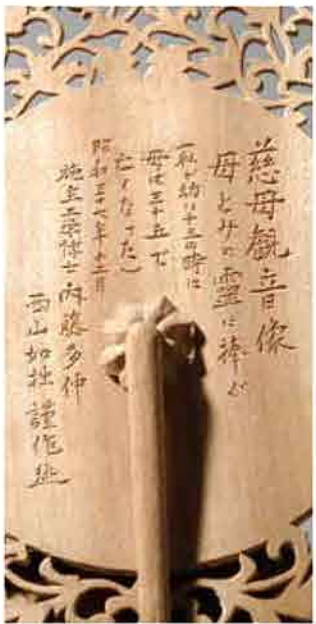 慈母観音像
母とみの霊に捧ぐ
(私が 十三の時に
母は三十五で
亡くなった)
昭和三十七年十二月
施主工学博士 内藤多仲
西山如拙 謹作